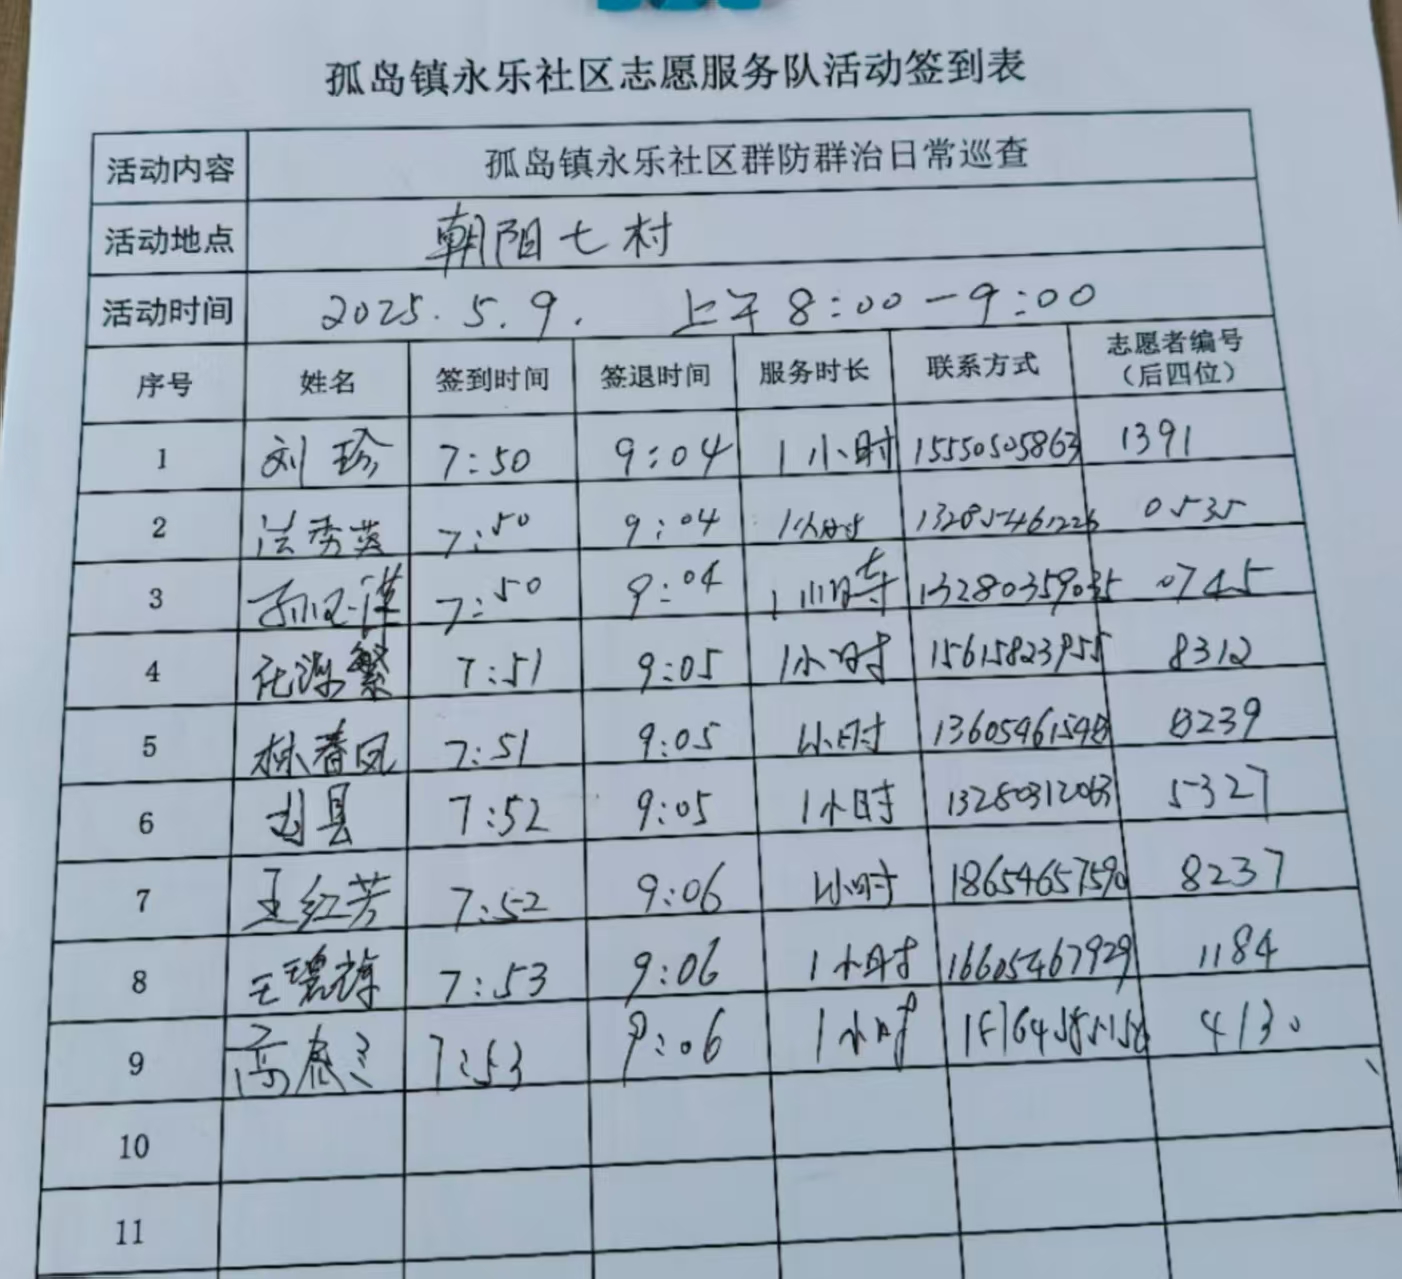 孤岛镇永乐社区志愿服务队活动签到表
活动内容 孤岛镇永乐社区群防群治日常巡查
活动地点 朝阳七村
活动时间 2025.5.9. 上午8:00-9:00
序号 姓名 签到时间 签退时间 服务时长 联系方式 志愿者编号（后四位）
1 刘珍 7:50 9:04 1小时 15550505863 1391
2 7:50 9:04 1小时 0535
3 7:50 9:04 1小时 0745
4 7:51 9:05 1小时 15615823955 8312
5 林春凤 7:51 9:05 1小时 8239
6 7:52 9:05 1小时 13280312063 5327
7 王红芳 7:52 9:06 1小时 18654657590 8237
8 7:53 9:06 1小时 16605467929 1184
9 7:53 9:06 1小时 4130
10
11